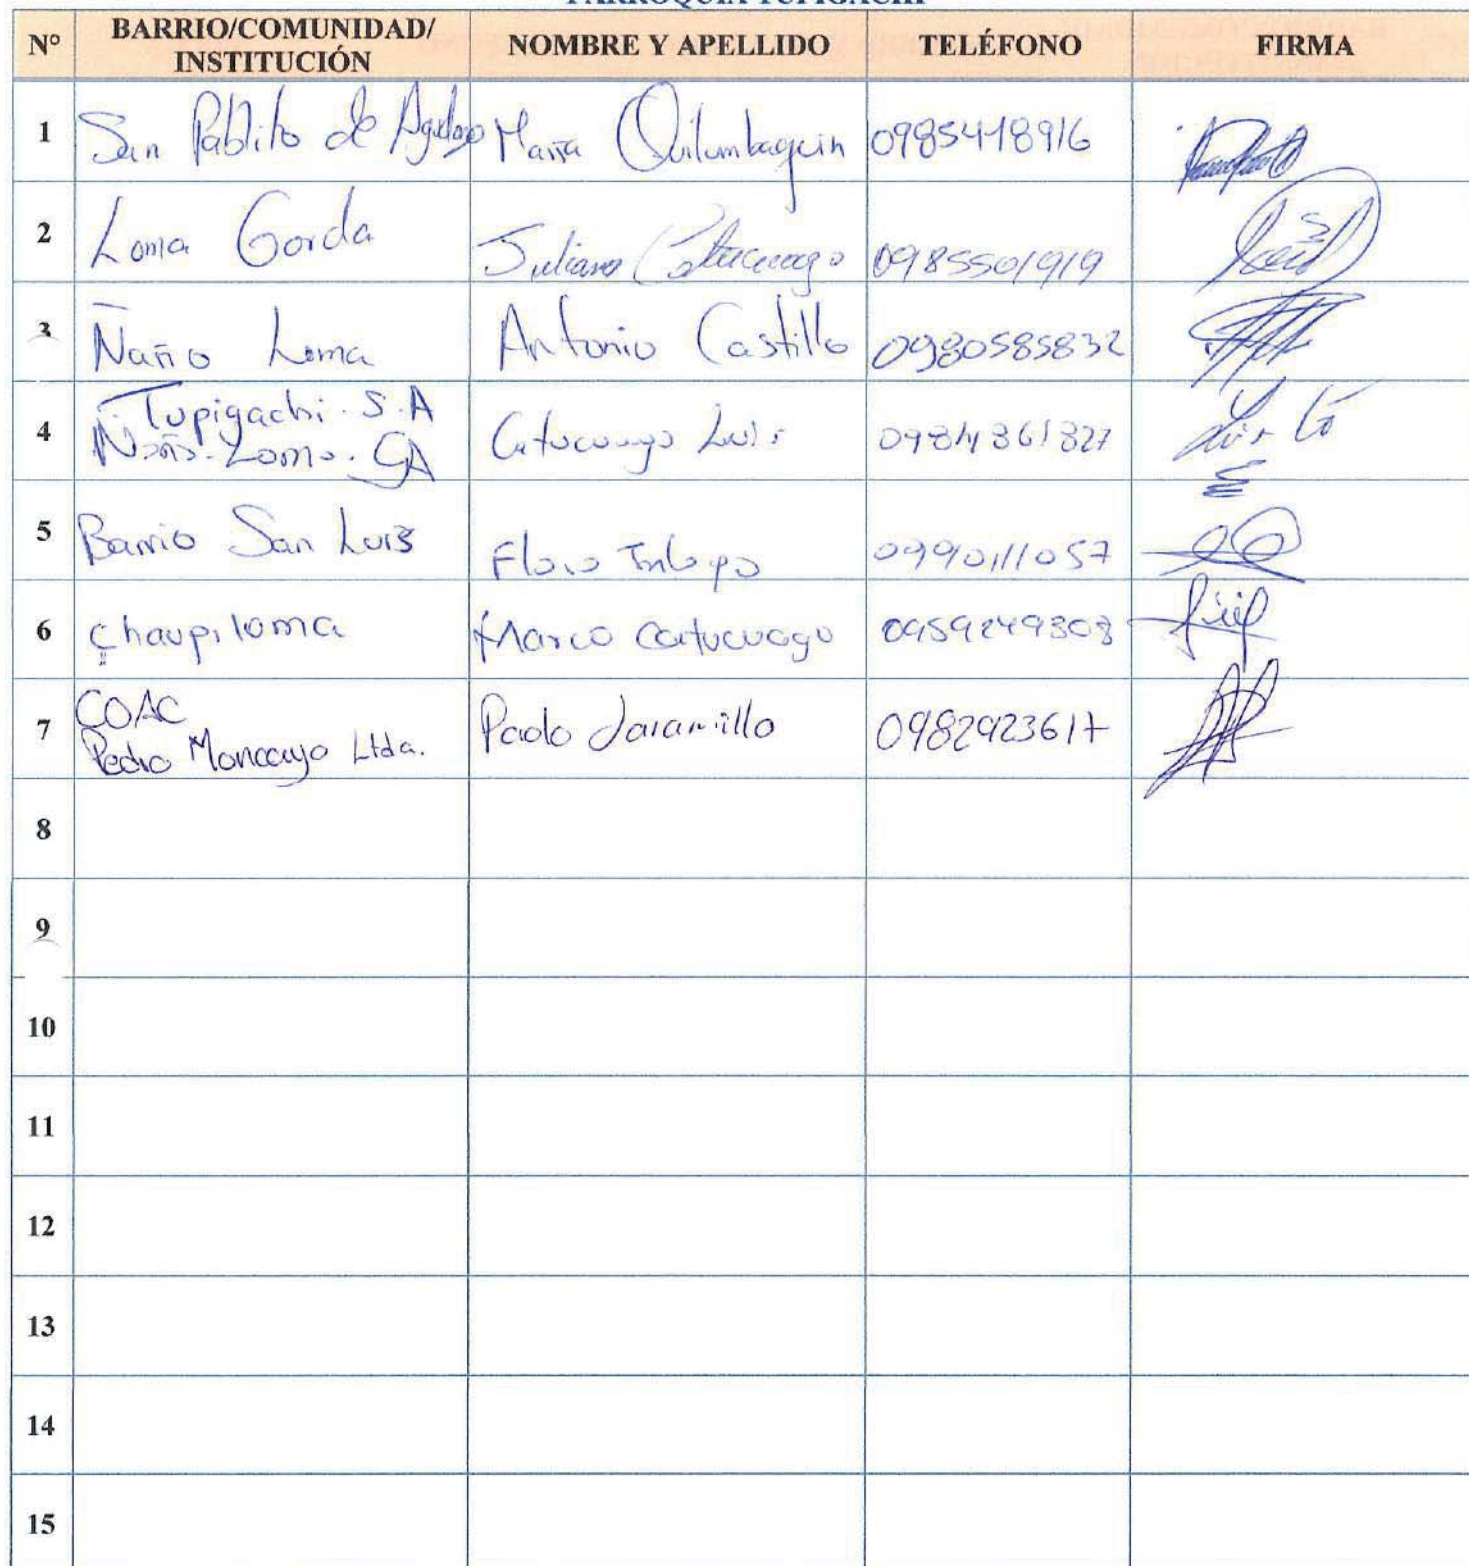 PARROQUIA TUPIGACHI
N° BARRIO/COMUNIDAD/ INSTITUCIÓN NOMBRE Y APELLIDO TELÉFONO FIRMA
1 San Pablito de Agualongo María Quilumbaquin 0985418916
2 Loma Gorda Juliana Catucuago 0985501919
3 Ñaño Loma Antonio Castillo 0980585832
4 Tupigachi. S.A
Ñaño. Loma. GA Catucuago Luis 0984861827
5 Barrio San Luis 0990111057
6 Chaupiloma Marco Catucuago 0959249308
7 COAC
Pedro Moncayo Ltda. Paolo Jaramillo 0982923617
8
9
10
11
12
13
14
15